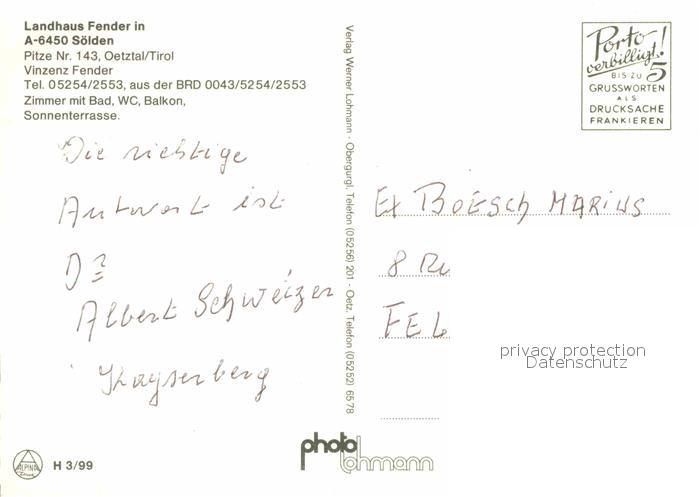 Landhaus Fender in
A-6450 Sölden
Pitze Nr. 143, Oetztal/Tirol
Vinzenz Fender
Tel. 05254/2553, aus der BRD 0043/5254/2553
Zimmer mit Bad, WC, Balkon,
Sonnenterrasse.
Die richtige
Antwort ist
D
Albert Schweizer
Kaysenberg
Verlag Werner Lohmann · Obergurgl, Telefon (05256) 201 · Oetz, Telefon (05252) 6578
Porto
verbilligt!
BIS ZU 5
GRUSSWORTEN
ALS
DRUCKSACHE
FRANKIEREN
BOESCH MARIUS
8
FEL
privacy protection
Datenschutz
ALPINA
H 3/99
photo
lohmann